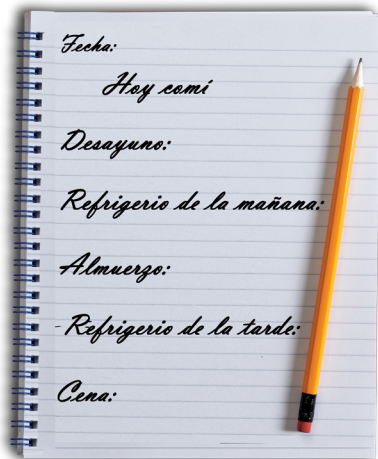 Fecha:
Hoy comí
Desayuno:
Refrigerio de la mañana:
Almuerzo:
- Refrigerio de la tarde:
Cena: